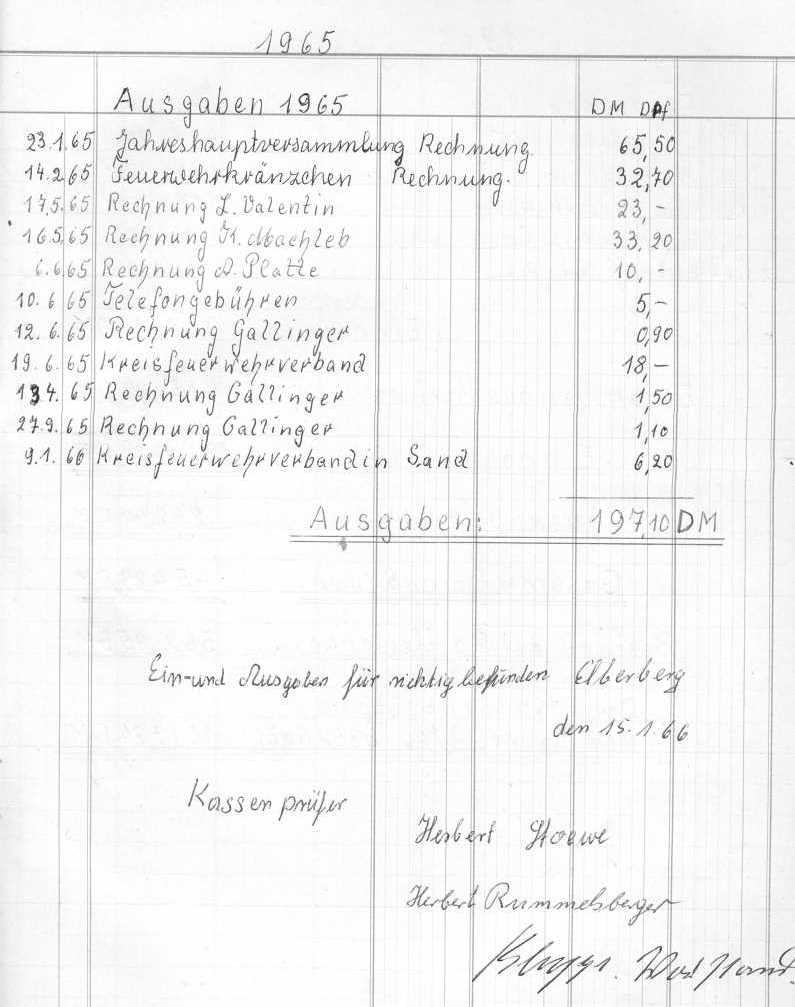 1965
Ausgaben 1965 DM DPf
23.1.65 Jahreshauptversammlung Rechnung. 65,50
14.2.65 Feuerwehrkränzchen Rechnung. 32,70
17.5.65 Rechnung L. Valentin 23,-
16.5.65 Rechnung K. 33,20
6.6.65 Rechnung A. Platte 10,-
10.6.65 Telefongebühren 5,-
12.6.65 Rechnung Gallinger 0,90
19.6.65 Kreisfeuerwehrverband 18,-
13 4. 65 Rechnung Gallinger 1,50
27.9.65 Rechnung Gallinger 1,10
9.1.66 Kreisfeuerwehrverband in Sand 6,20
Ausgaben: 197,10 DM
Ein- und Ausgaben für richtig befunden Elberberg
den 15.1.66
Kassenprüfer
Herbert Stoewe
Herbert Rummelsberger